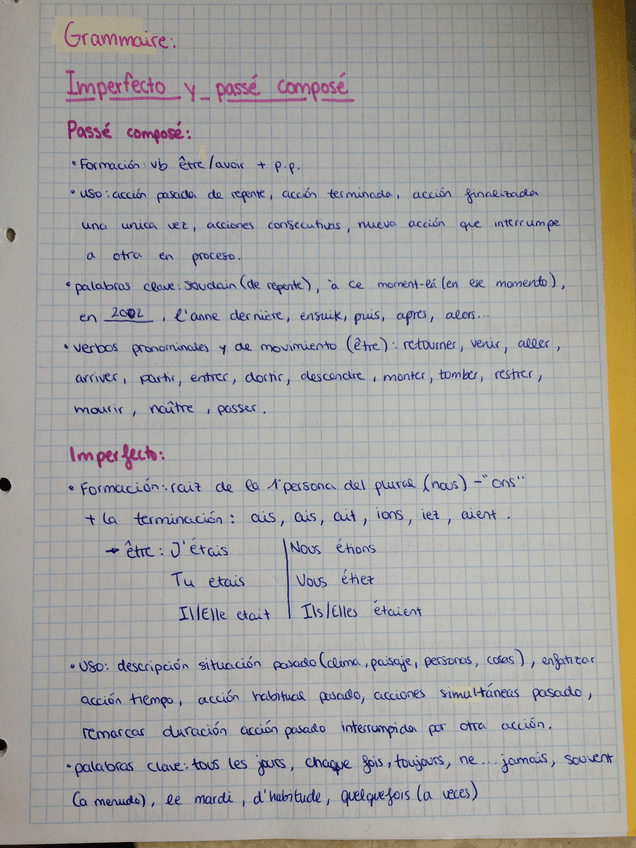 Grammaire:
Imperfecto y passé composé
Passé composé:
• Formación: vb être/avoir + p.p.
• uso: acción pasada de repente, acción terminada, acción finalizada
una unica vez, acciones consecutivas, nueva acción que interrumpe
a otra en proceso.
• palabras clave: soudain (de repente), à ce moment-lá (en ese momento),
en 2002, l'anne dernière, ensuik, puis, apres, alors...
• verbos pronominales y de movimiento (être): retourner, venir, aller,
arriver, partir, entrer, dortir, descendre, monter, tomber, restrer,
mourir, naître, passer.
Imperfecto:
• Formación: raiz de la 1ª persona del plural (nous) -"ons"
+ la terminación: ais, ais, ait, ions, iez, aient.
→ être: J'étais | Nous étions
Tu etais | Vous étiez
Il/Elle etait | Ils/Elles étaient
• USO: descripción situación pasado (clima, paisaje, personas, cosas), enfatizar
acción tiempo, acción habitual pasado, acciones simultáneas pasado,
remarcas duración acción pasado interrumpida por otra acción.
• palabras clave: tous les jours, chaque fois, toujours, ne... jamais, souvent
(a menudo), le mardi, d'habitude, quelquefois (a veces)